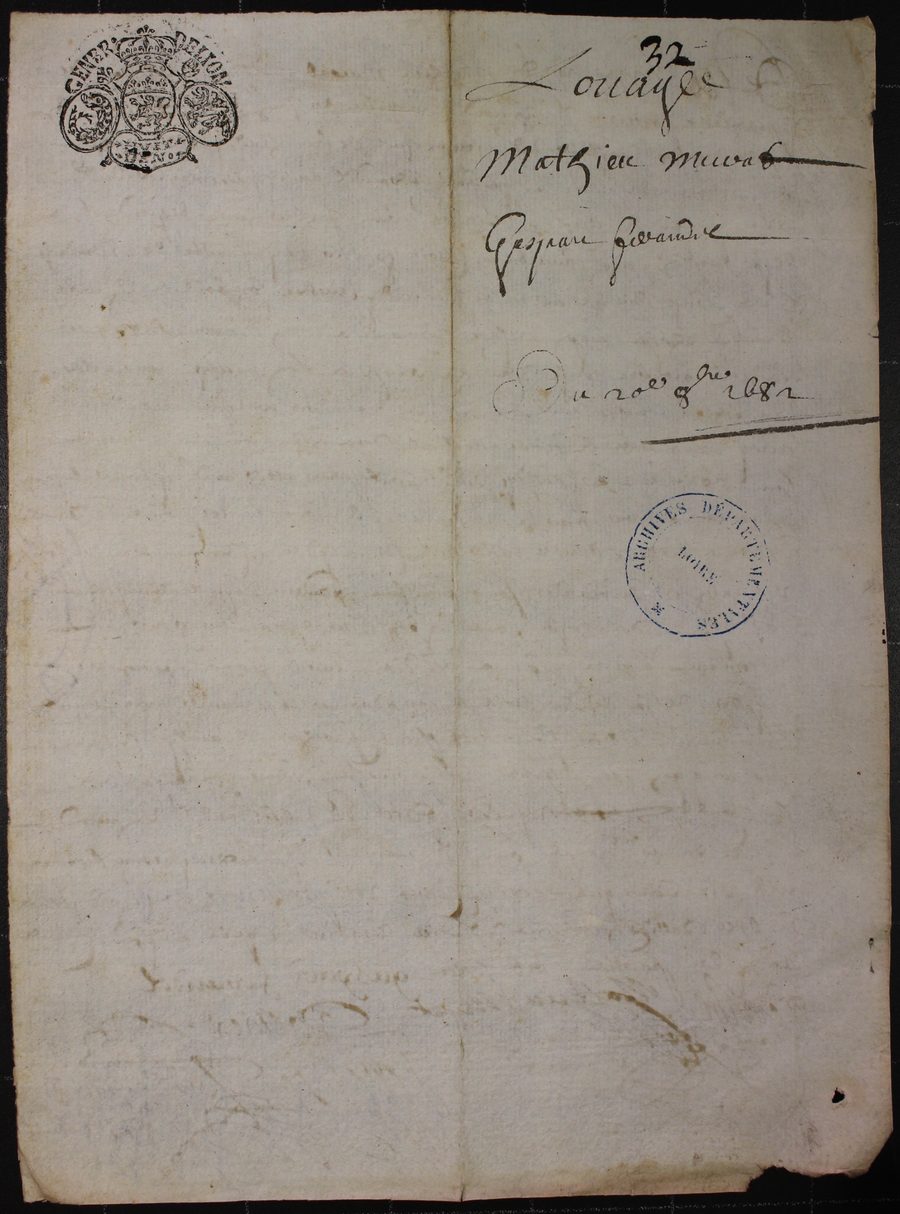 GENER. DE LYON
HVIT
DEN.
32
Louage
Mathieu Murat
Gaspar
Du 20e 8bre 1682
ARCHIVES DÉPARTEMENTALES
LOIRE